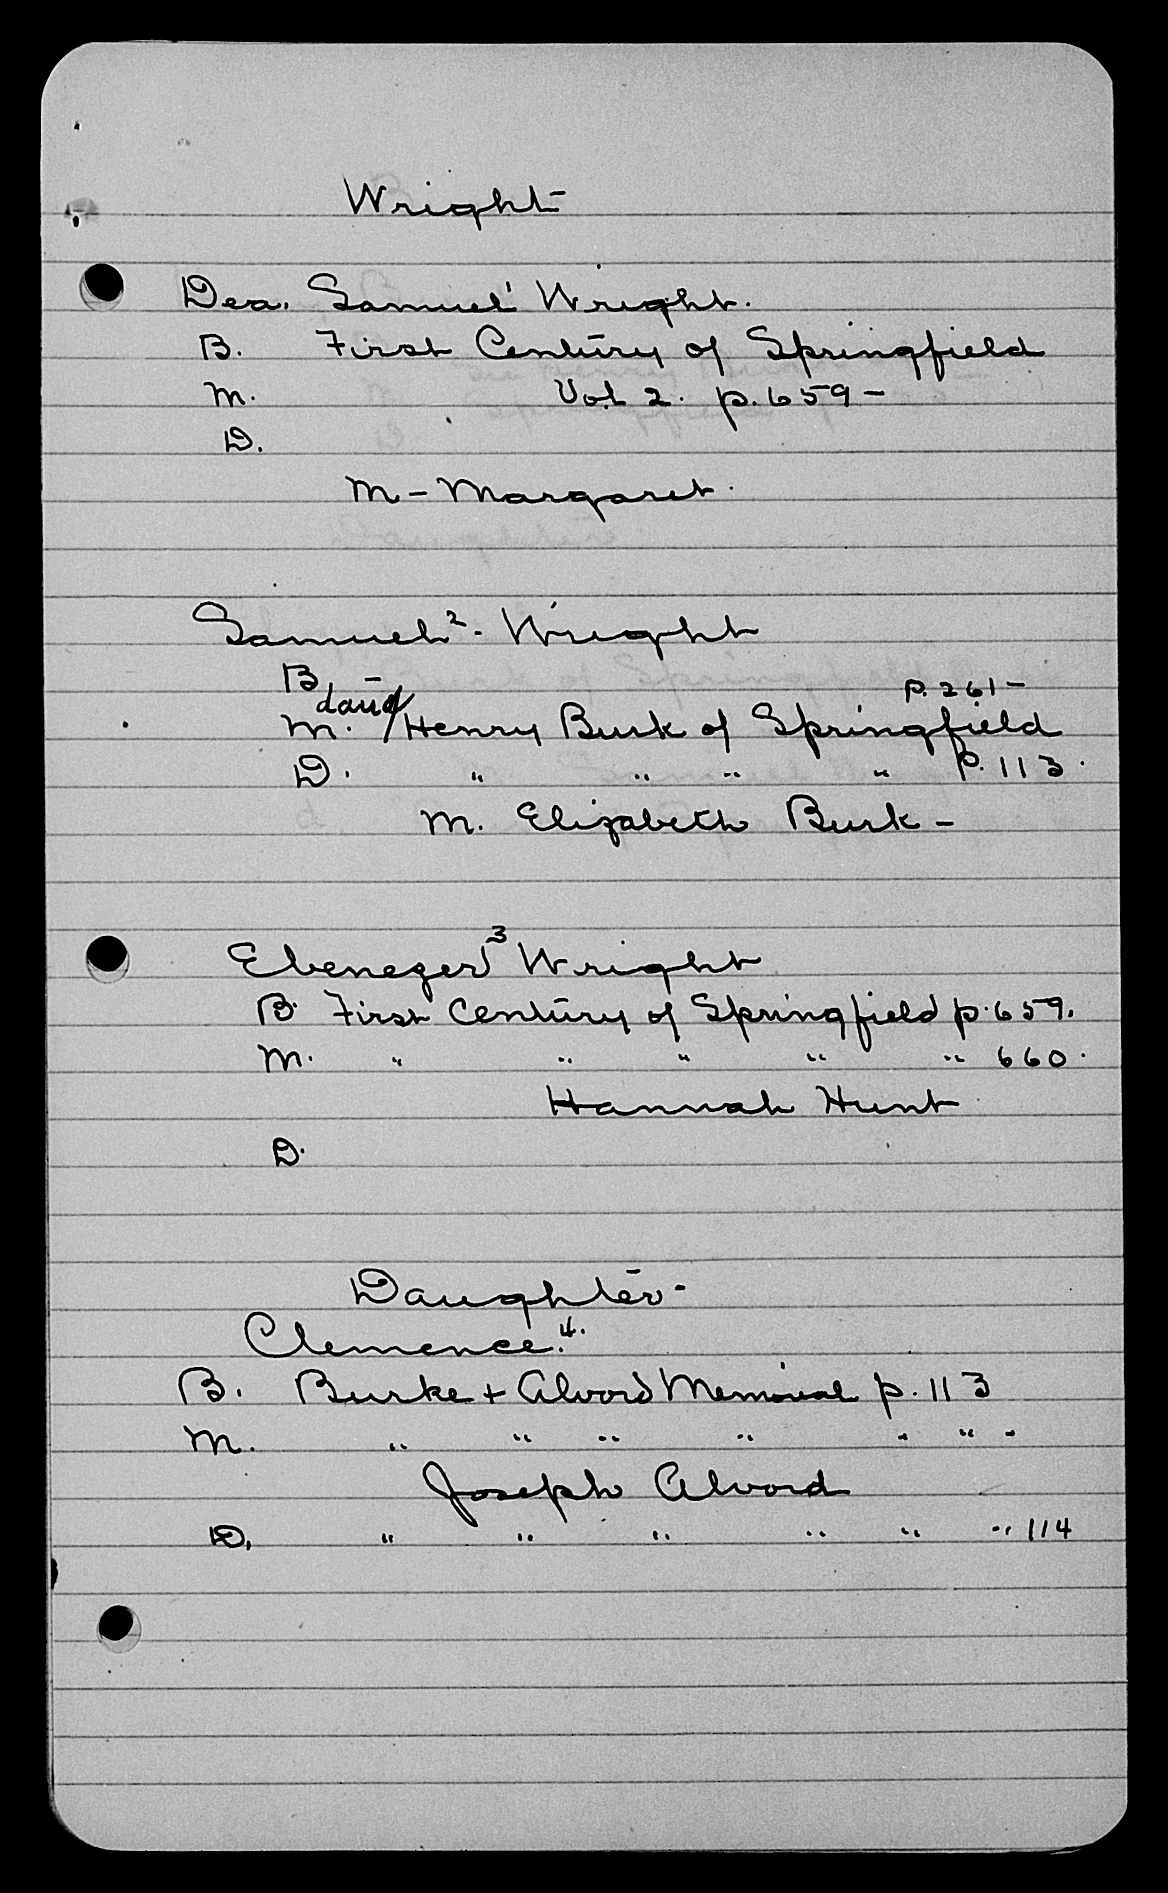 Wright-
Dea. Samuel¹ Wright.
B. First Century of Springfield
M. Vol 2. p. 659-
D.
M - Margaret.
Samuel². Wright
B. p. 261-
M. Henry Burk of Springfield
D. " " " " p. 113.
M. Elizabeth Burk -
Ebenezer³ Wright
B. First Century of Springfield p. 659.
M. " " " " " 660.
Hannah Hunt
D.
Daughter-
Clemence⁴.
B. Burke + Alvord Memorial p. 113
M. " " " " " " "
Joseph Alvord
D. " " " " " " 114